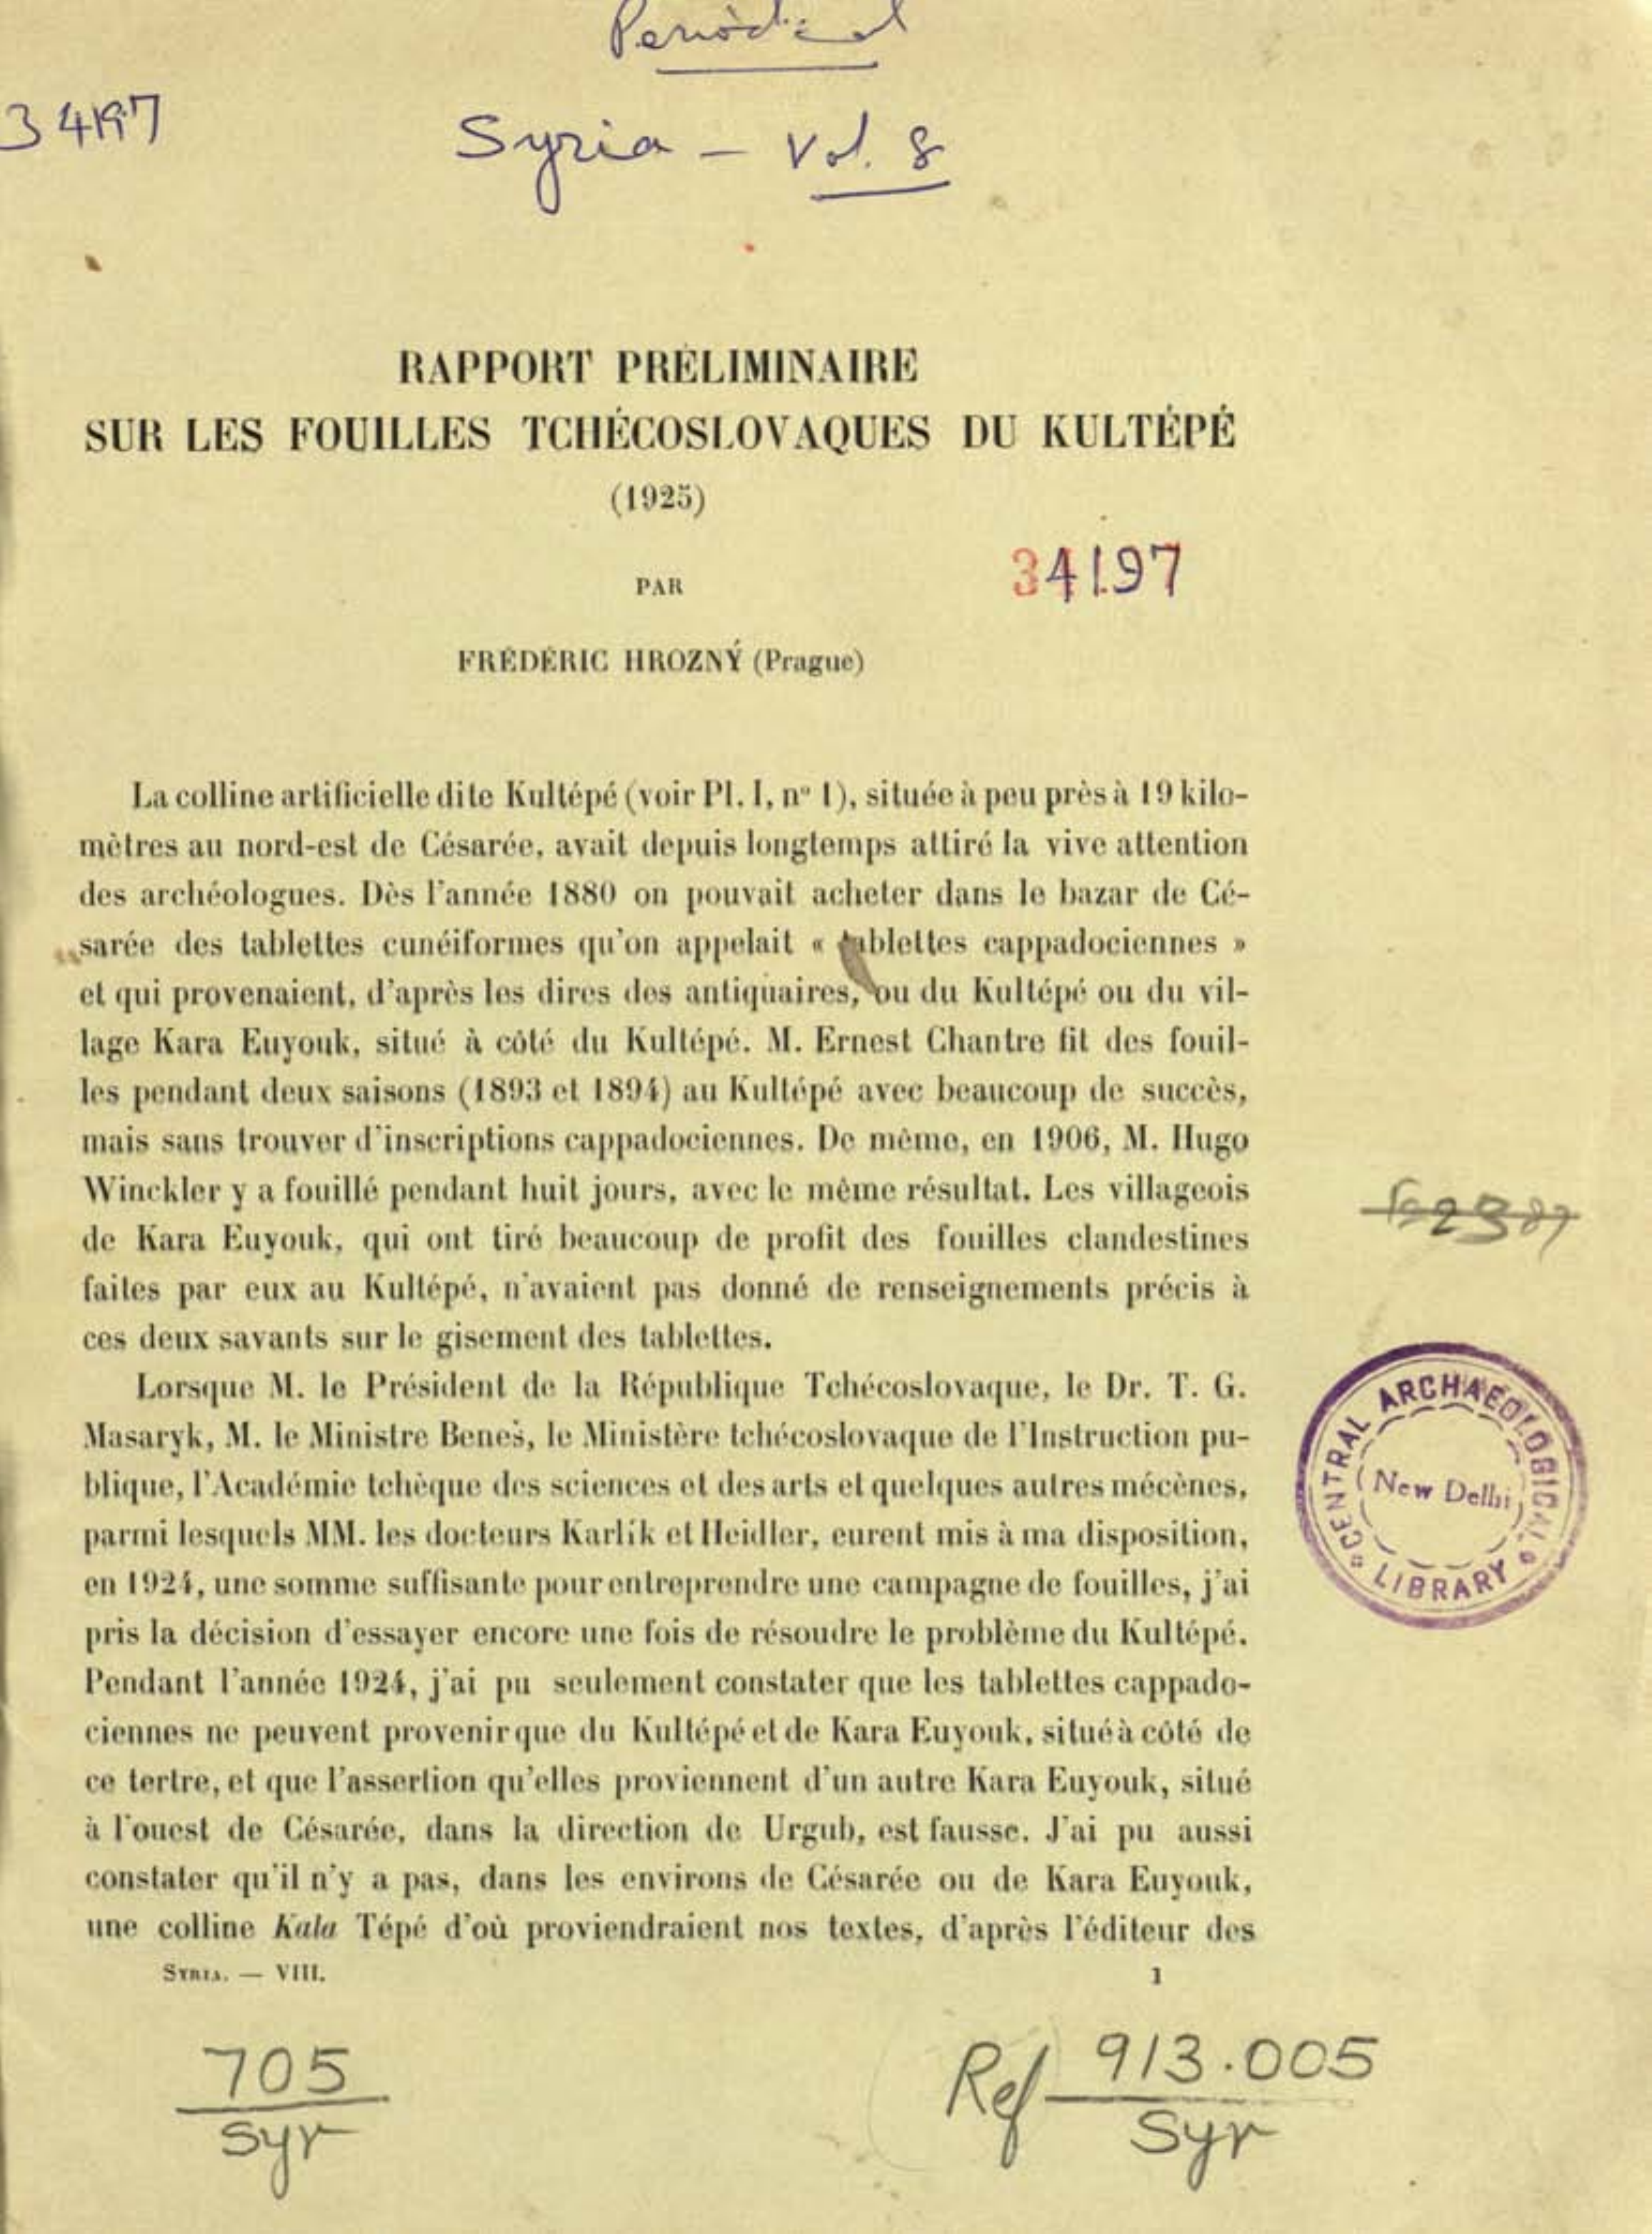 Periodical
34197
Syria - Vol. 8
RAPPORT PRÉLIMINAIRE
SUR LES FOUILLES TCHÉCOSLOVAQUES DU KULTÉPÉ
(1925)
34197
PAR
FRÉDÉRIC HROZNÝ (Prague)
La colline artificielle dite Kultépé (voir Pl. I, n° 1), située à peu près à 19 kilo-
mètres au nord-est de Césarée, avait depuis longtemps attiré la vive attention
des archéologues. Dès l'année 1880 on pouvait acheter dans le bazar de Cé-
sarée des tablettes cunéiformes qu'on appelait « tablettes cappadociennes »
et qui provenaient, d'après les dires des antiquaires, ou du Kultépé ou du vil-
lage Kara Euyouk, situé à côté du Kultépé. M. Ernest Chantre fit des fouil-
les pendant deux saisons (1893 et 1894) au Kultépé avec beaucoup de succès,
mais sans trouver d'inscriptions cappadociennes. De même, en 1906, M. Hugo
Winckler y a fouillé pendant huit jours, avec le même résultat. Les villageois
de Kara Euyouk, qui ont tiré beaucoup de profit des fouilles clandestines
faites par eux au Kultépé, n'avaient pas donné de renseignements précis à
ces deux savants sur le gisement des tablettes.
Lorsque M. le Président de la République Tchécoslovaque, le Dr. T. G.
Masaryk, M. le Ministre Beneš, le Ministère tchécoslovaque de l'Instruction pu-
blique, l'Académie tchèque des sciences et des arts et quelques autres mécènes,
parmi lesquels MM. les docteurs Karlík et Heidler, eurent mis à ma disposition,
en 1924, une somme suffisante pour entreprendre une campagne de fouilles, j'ai
pris la décision d'essayer encore une fois de résoudre le problème du Kultépé.
Pendant l'année 1924, j'ai pu seulement constater que les tablettes cappado-
ciennes ne peuvent provenir que du Kultépé et de Kara Euyouk, situé à côté de
ce tertre, et que l'assertion qu'elles proviennent d'un autre Kara Euyouk, situé
à l'ouest de Césarée, dans la direction de Urgub, est fausse. J'ai pu aussi
constater qu'il n'y a pas, dans les environs de Césarée ou de Kara Euyouk,
une colline Kala Tépé d'où proviendraient nos textes, d'après l'éditeur des
SYRIA. — VIII.
1
CENTRAL ARCHAEOLOGICAL
New Delhi
LIBRARY
705
Syr
Ref 913.005
Syr